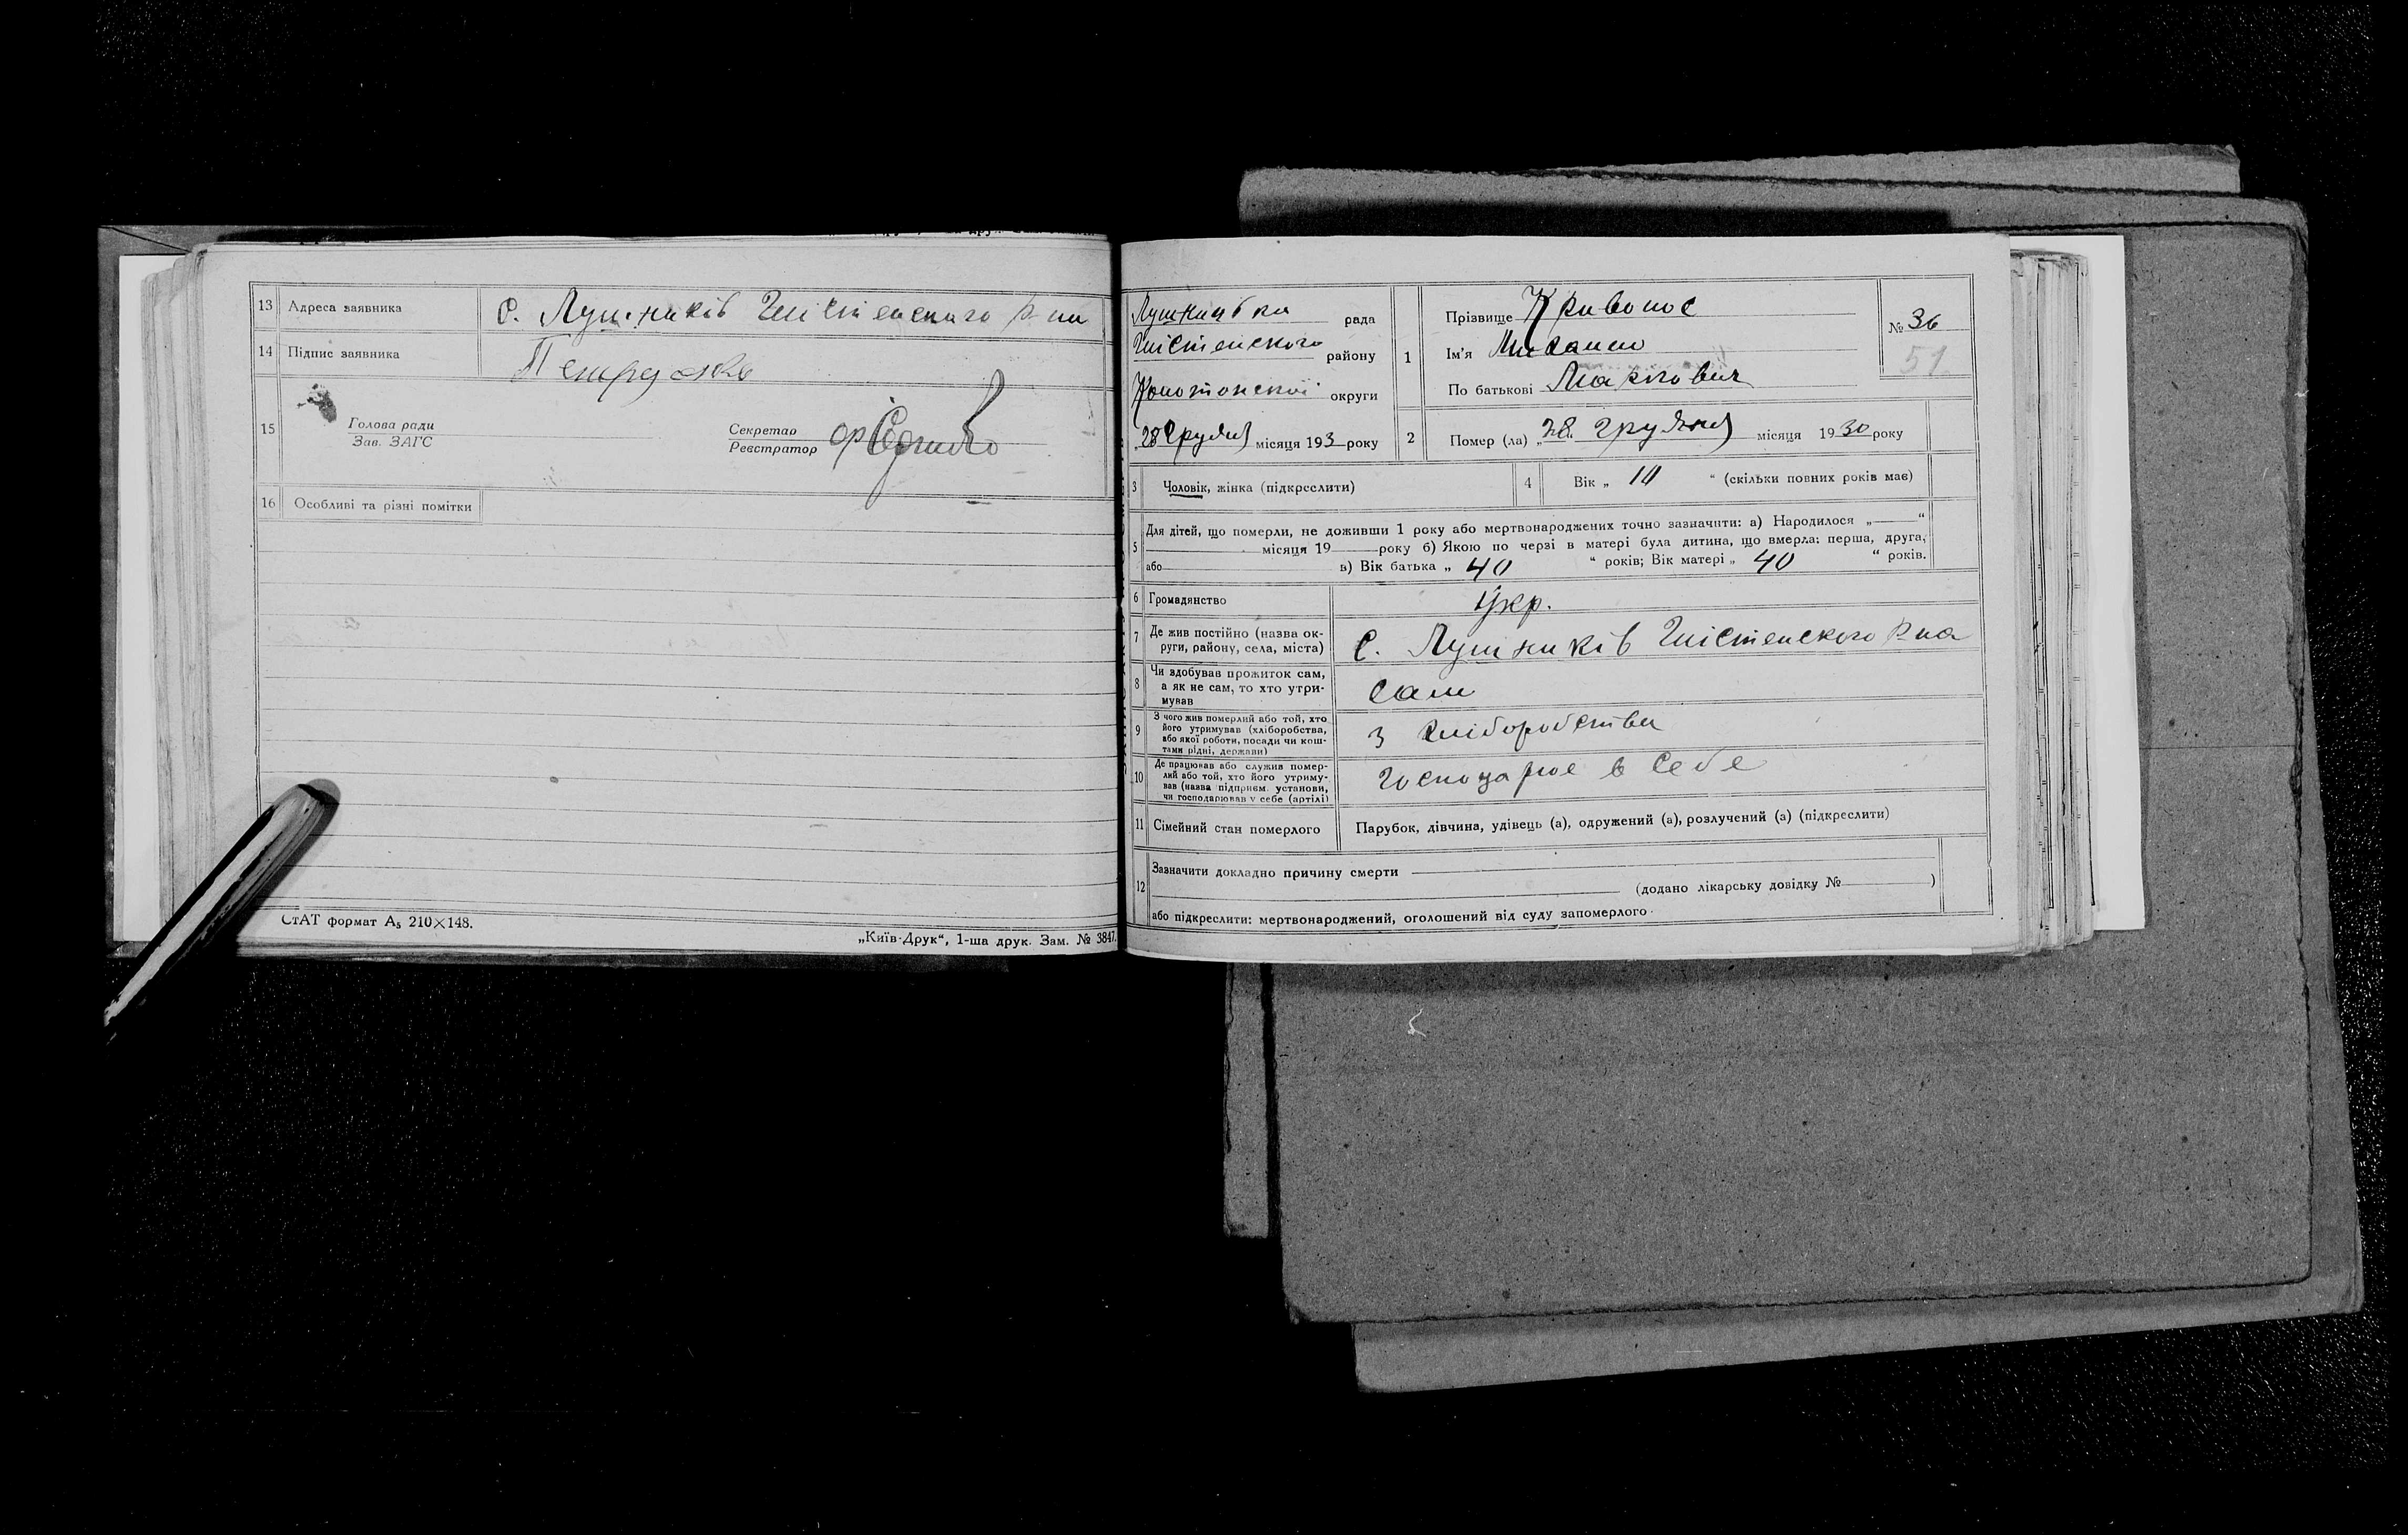 13 Адреса заявника с. Лушників Шістенского р-на
14 Підпис заявника
15 Голова ради
Зав. ЗАГС
Секретар
Реєстратор
16 Особливі та різні помітки
СтАТ формат А₅ 210×148.
„Київ-Друк“, 1-ша друк. Зам. № 3847.
рада
Шістенского району
Конотопскої округи
28 Грудня місяця 193 року
1 Прізвище Кривонос
Ім'я Михайло
По батькові Маркович
№ 36
51
2 Помер (ла) „28 Грудня місяця 1930 року
3 Чоловік, жінка (підкреслити)
4 Вік „ 10 “ (скільки повних років має)
5 Для дітей, що померли, не доживши 1 року або мертвонароджених точно зазначити: а) Народилося „ “
місяця 19 року б) Якою по черзі в матері була дитина, що вмерла: перша, друга,
або в) Вік батька „ 40 “ років; Вік матері „ 40 “ років.
6 Громадянство Укр.
7 Де жив постійно (назва ок-
руги, району, села, міста) с. Лушників Шістенского р-на
8 Чи здобував прожиток сам,
а як не сам, то хто утри-
мував сам
9 З чого жив померлий або той, хто
його утримував (хліборобства,
або якої роботи, посади чи кош-
тами рідні, держави) з хліборобства
10 Де працював або служив помер-
лий або той, хто його утриму-
вав (назва підприєм. установи,
чи господарював у себе (артілі) Господарює в себе
11 Сімейний стан померлого Парубок, дівчина, удівець (а), одружений (а), розлучений (а) (підкреслити)
12 Зазначити докладно причину смерти
(додано лікарську довідку № )
або підкреслити: мертвонароджений, оголошений від суду запомерлого